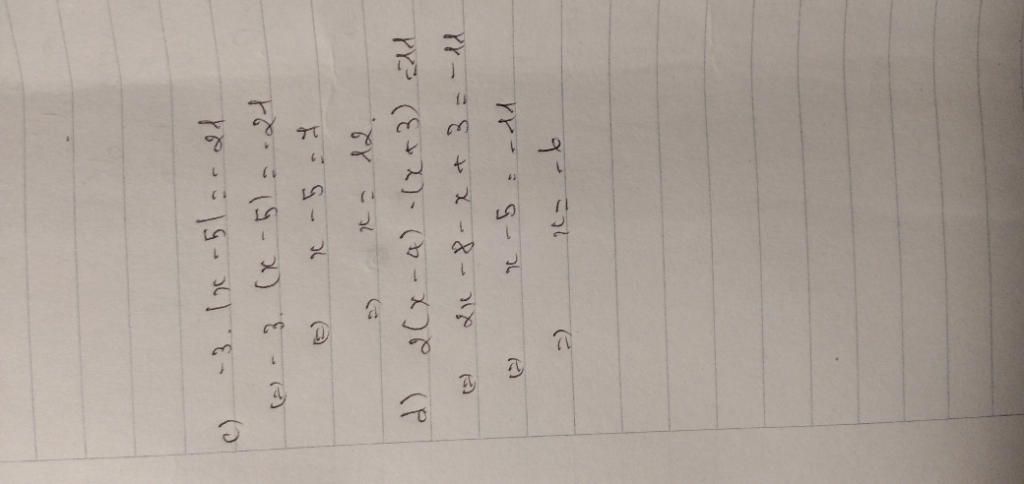 c) -3. |x - 5| = - 21
(=) - 3. (x - 5) = - 21
(=) x - 5 = 7
=) x = 12.
d) 2(x - 4) - (x + 3) = -11
(=) 2x - 8 - x + 3 = - 11
(=) x - 5 = - 11
=) x = - 6